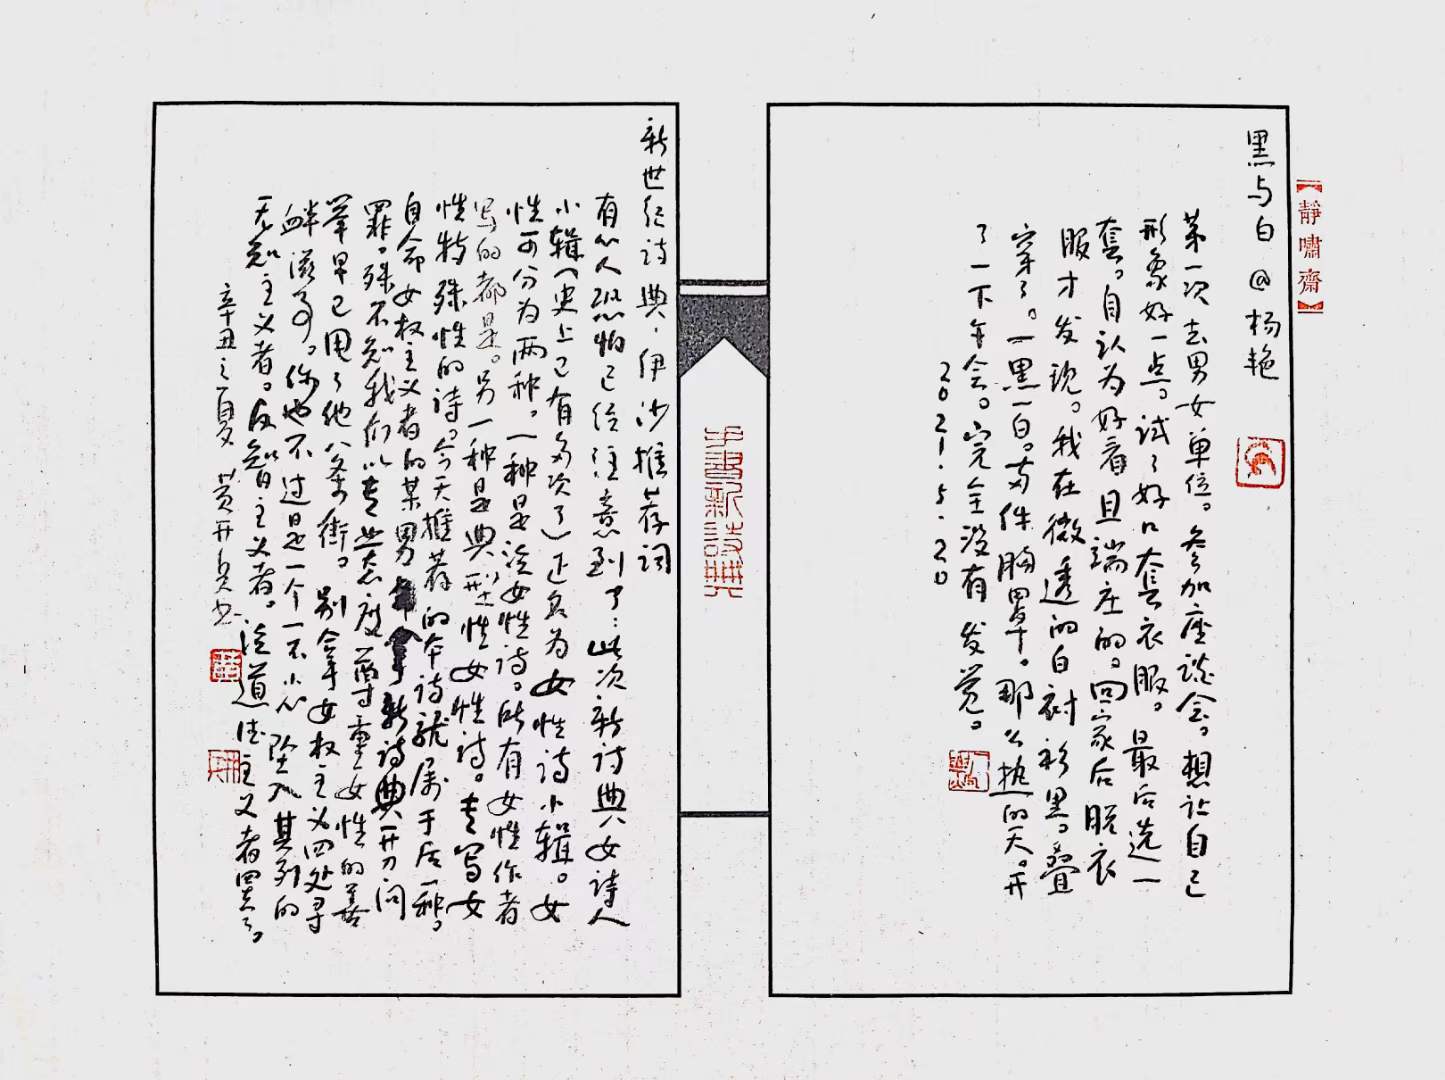 【靜嘯齋】
黑与白@杨艳
第一次去男女单位。参加座谈会。想让自己
形象好一点。试了好几套衣服。最后选一
套。自认为好看且端庄的。回家后脱衣
服才发现。我在微透的白衬衫里。叠
穿了。一黑一白。两件胸罩。那么热的天。开
了一下午会。完全没有发觉。
2021.5.20
手書新詩典
新世纪诗典·伊沙推荐词
有心人恐怕已经注意到了：此次新诗典八女诗人
小辑（史上已有多次了）正名为女性诗小辑。女
性可分为两种。一种是泛女性诗。所有女性作者
写的都是。另一种是典型性女性诗。专写女
性特殊性的诗。今天推荐的本诗就属于后一种。
自命女权主义者的某男拿新诗典开刀问
罪。殊不知我们以专业态度尊重女性的善
举早已甩了他八条街。别拿女权主义四处寻
衅滋事。你也不过是一个一不小心坠入其列的
无知主义者。反智主义者。泛道德主义者罢了。
辛丑之夏 黄开兵书